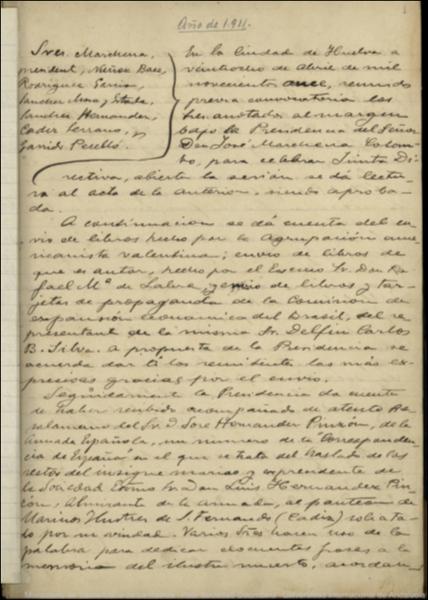 Año de 1.911.
Sres. Marchena,
president, Muñoz Baez,
Rodriguez Garcia,
Sanchez Mora, y Estrada,
Sanchez Hernandez,
Cader Serrano, y
Garrido Perelló.
En la Ciudad de Huelva a
veintiocho de Abril de mil
novecientos once, reunidos
previa convocatoria los
Sres. anotados al margen
bajo la Presidencia del Señor
Don José Marchena Colom-
bo, para celebrar Junta Di-
rectiva, abierta la sesión se dá lectu-
ra al acta de la anterior, siendo aproba-
da.
A continuacion se dá cuenta del en-
vio de libros hecho por la Agrupación ame-
ricanista valentina; envio de libros de
que es autor, hecho por el Excmo Sr. Don Ra-
fael Mª de Labra, y envio de libros y tar-
jetas de propaganda de la Comision de
expansión economica del Brasil, del re-
presentante de la misma Sr. Delfin Carlos
B. Silva. A propuesta de la Presidencia se
acuerda dar á los remitentes las más ex-
presivas gracias por el envio.
Seguidamente la Presidencia da cuenta
de haber recibido acompañado de atento Be-
salamano del Sr. D. José Hernandez Pinzón, de la
Armada Española, un numero de "la Corresponden-
cia de España" en el que se trata del traslado de los
restos del insigne marino y
de
la Sociedad Excmo Sr. Don Luis Hernandez Pin-
zón, Almirante de la Armada, al panteon de
Marinos Ilustres de S. Fernando (Cadiz) solicita-
do por su viudad. Varios Sres hacen uso de la
palabra para dedicar elocuentes frases a la
memoria del ilustre muerto, acordan-